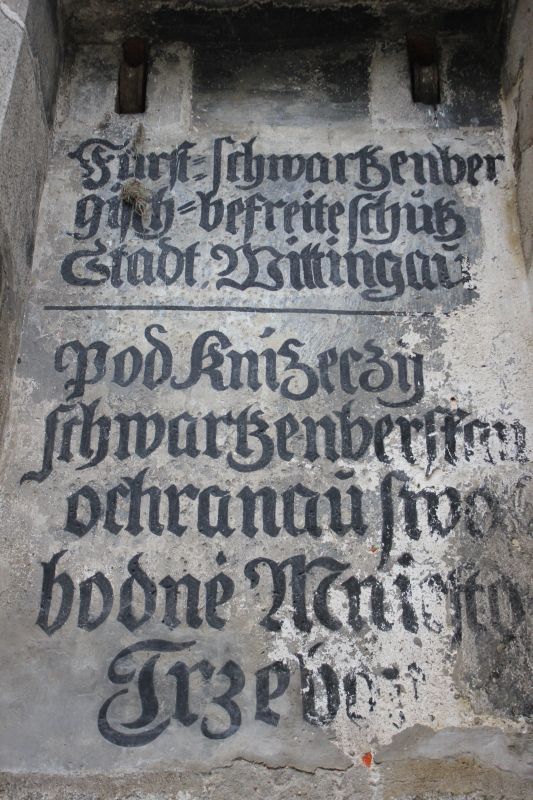 Fürst=schwartzenber
gisch=befreite schutz
Stadt Wittingau
Pod Knizeczy
schwartzenberskau
ochranau swo
bodné Miesto
Trzebon